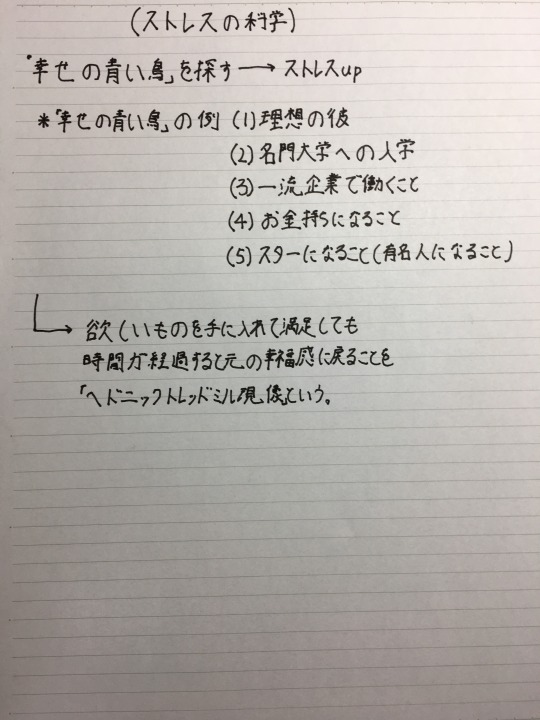 (ストレスの科学)
「幸せの青い鳥」を探す→ストレスup
*「幸せの青い鳥」の例 (1)理想の彼
(2)名門大学への入学
(3)一流企業で働くこと
(4)お金持ちになること
(5)スターになること(有名人になること)
→欲しいものを手に入れて満足しても
時間が経過すると元の幸福感に戻ることを
「ヘドニックトレッドミル現像」という。